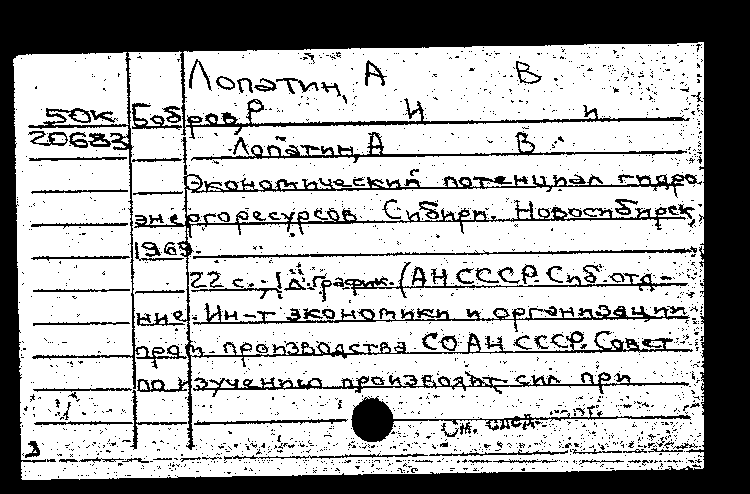 Лопатин, А В.
50К Бобров, Р И и
20683 Лопатин, А В.
Экономический потенциал гидро
энергоресурсов Сибири. Новосибирск,
1969.
22 с.; 1 л. график. (АН СССР. Сиб. отд-
ние. Ин-т экономики и организации
пром. производства СО АН СССР. Совет
по изучению производит. сил при
См. след.